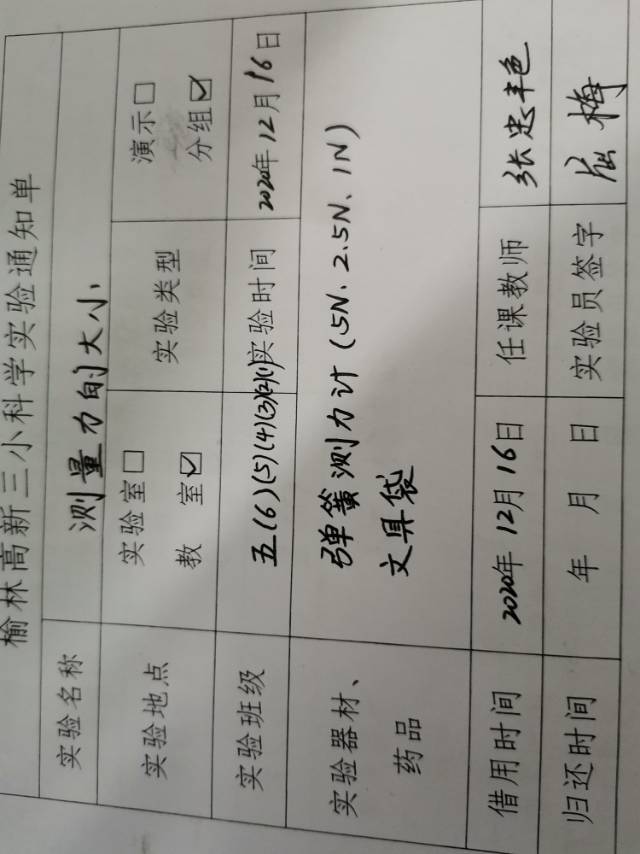 榆林高新三小科学实验通知单
实验名称 测量力的大小
实验地点 实验室□ 教 室☑ 实验类型 演示□ 分组☑
实验班级 五(6)(5)(4)(3)(2)(1) 实验时间 2020年12月16日
实验器材、 弹簧测力计(5N、2.5N、1N)
药品 文具袋
借用时间 2020年12月16日 任课教师 张忠艳
归还时间 年 月 日 实验员签字 屈梅